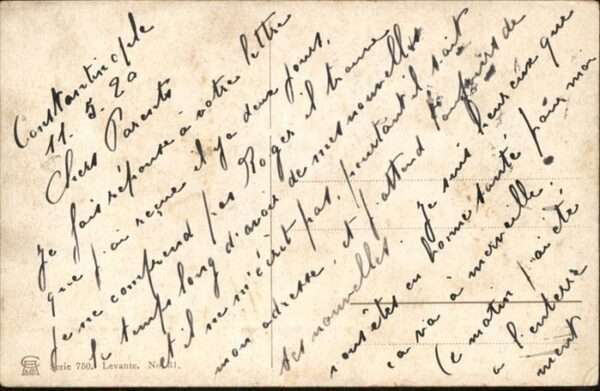 Constantinople
11. 5. 20
Chers Parents
Je fais réponse à votre lettre
que j'ai reçue il y a deux jours,
je ne comprend pas Roger il trouve
le temps long d'avoir de mes nouvelles
et il ne m'écrit pas, pourtant il sait
mon adresse, et j'attend toujours de
ses nouvelles. Je suis heureux que
vous êtes en bonne santé, pour moi
ça va à merveille.
Ce matin j'ai été
à l'enterre
ment
Serie 750. Levante. No.